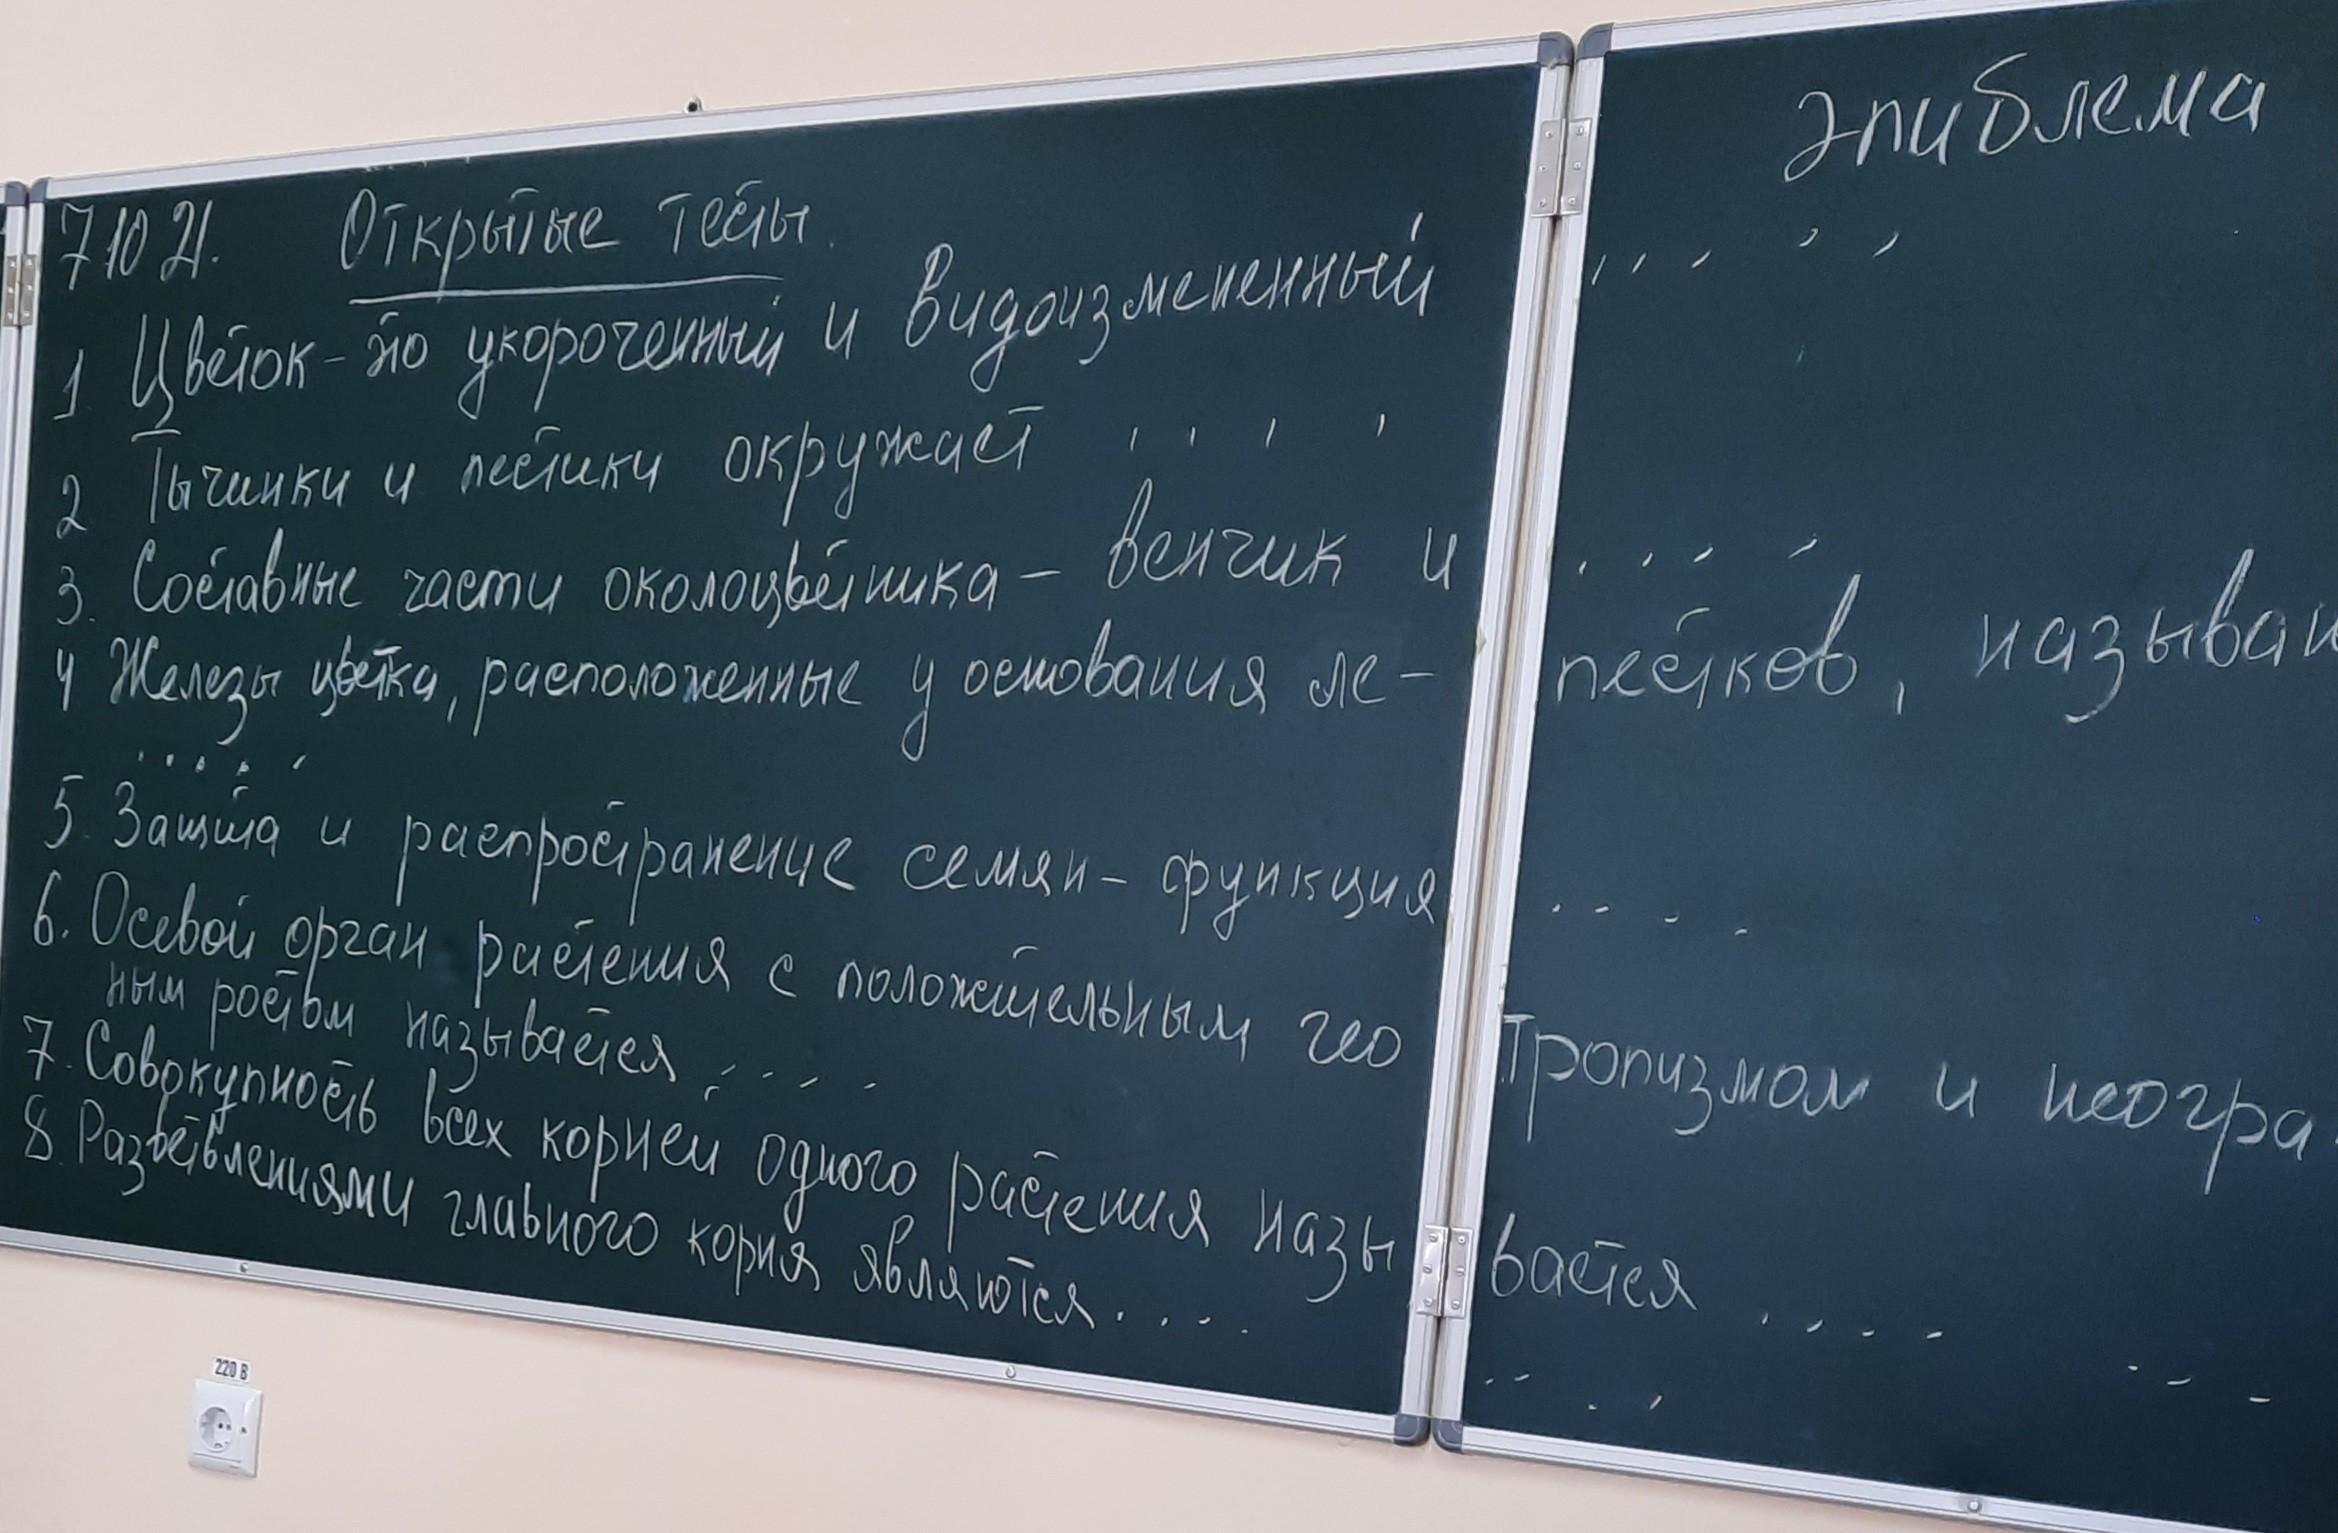 эпиблема
7 10 21. Открытые тесты.
1 Цветок - это укороченный и видоизмененный .....
2 Тычинки и пестики окружает ....
3. Составные части околоцветника - венчик и ....
4 Железы цветка, расположенные у основания ле- пестков, называ
.....
5. Защита и распространение семян - функция ....
6. Осевой орган растения с положительным гео тропизмом и неогра
ным ростом называется ....
7. Совокупность всех корней одного растения назы вается ....
8. Разветвлениями главного корня являются .... .... ...
220 В